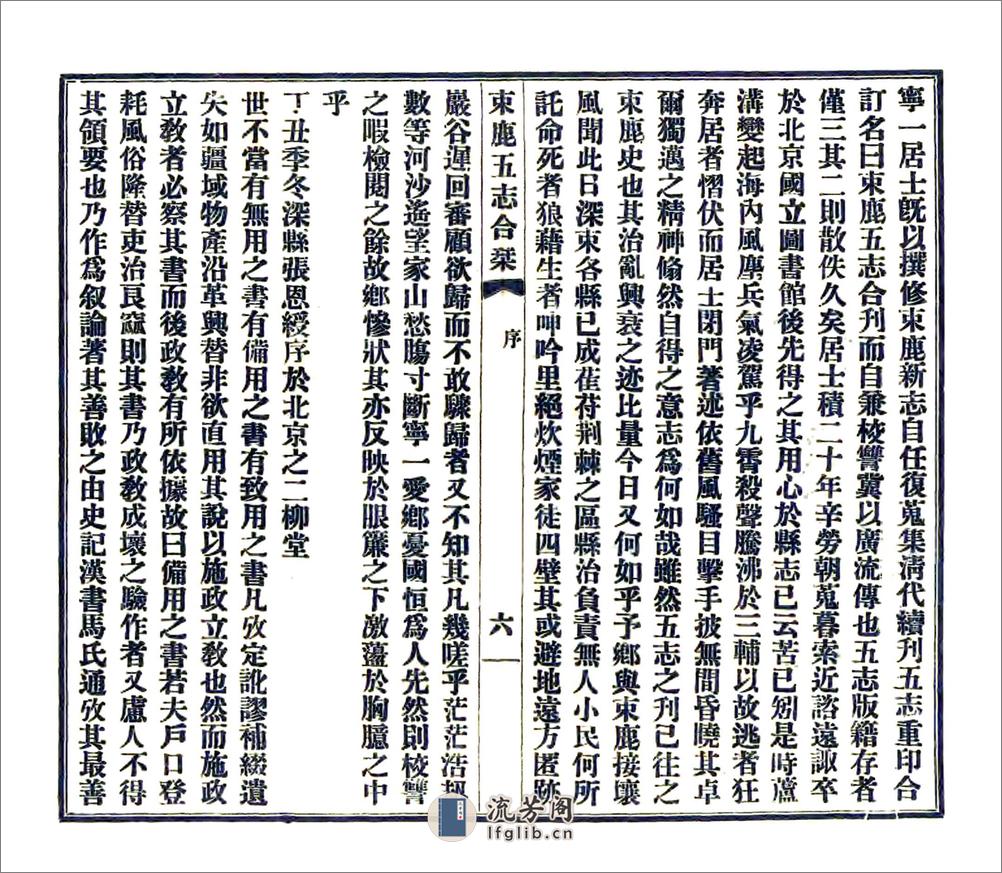 寧一居士旣以撰修束鹿新志自任復蒐集淸代續刊五志重印合
訂名曰束鹿五志合刊而自兼校讐冀以廣流傳也五志版籍存者
僅三其二則散佚久矣居士積二十年辛勞朝蒐暮索近諮遠諏卒
於北京國立圖書館後先得之其用心於縣志已云苦已矧是時蘆
溝變起海內風塵兵氣凌駕乎九霄殺聲騰沸於三輔以故逃者狂
奔居者慴伏而居士閉門著述依舊風騷目擊手披無間昏曉其卓
爾獨邁之精神翛然自得之意志爲何如哉雖然五志之刊已往之
束鹿史也其治亂興衰之迹比量今日又何如乎予鄉與束鹿接壤
風聞此日深束各縣已成萑苻荆棘之區縣治負責無人小民何所
託命死者狼藉生者呻吟里絕炊煙家徒四壁其或避地遠方匿跡
束鹿五志合棻
序
六
巖谷遲回審顧欲歸而不敢驟歸者又不知其凡幾嗟乎茫茫浩刧
數等河沙遙望家山愁膓寸斷寧一愛鄉憂國恒爲人先然則校讐
之暇檢閱之餘故鄉慘狀其亦反映於眼簾之下激蘯於胸臆之中
乎
丁丑季冬深縣張恩綬序於北京之二柳堂
世不當有無用之書有備用之書有致用之書凡攷定訛謬補綴遺
失如疆域物產沿革興替非欲直用其說以施政立敎也然而施政
立敎者必察其書而後政敎有所依據故曰備用之書若夫戶口登
耗風俗隆替吏治良窳則其書乃政敎成壞之驗作者又慮人不得
其領要也乃作爲叙論著其善敗之由史記漢書馬氏通攷其最善
流芳阁
lfglib.cn